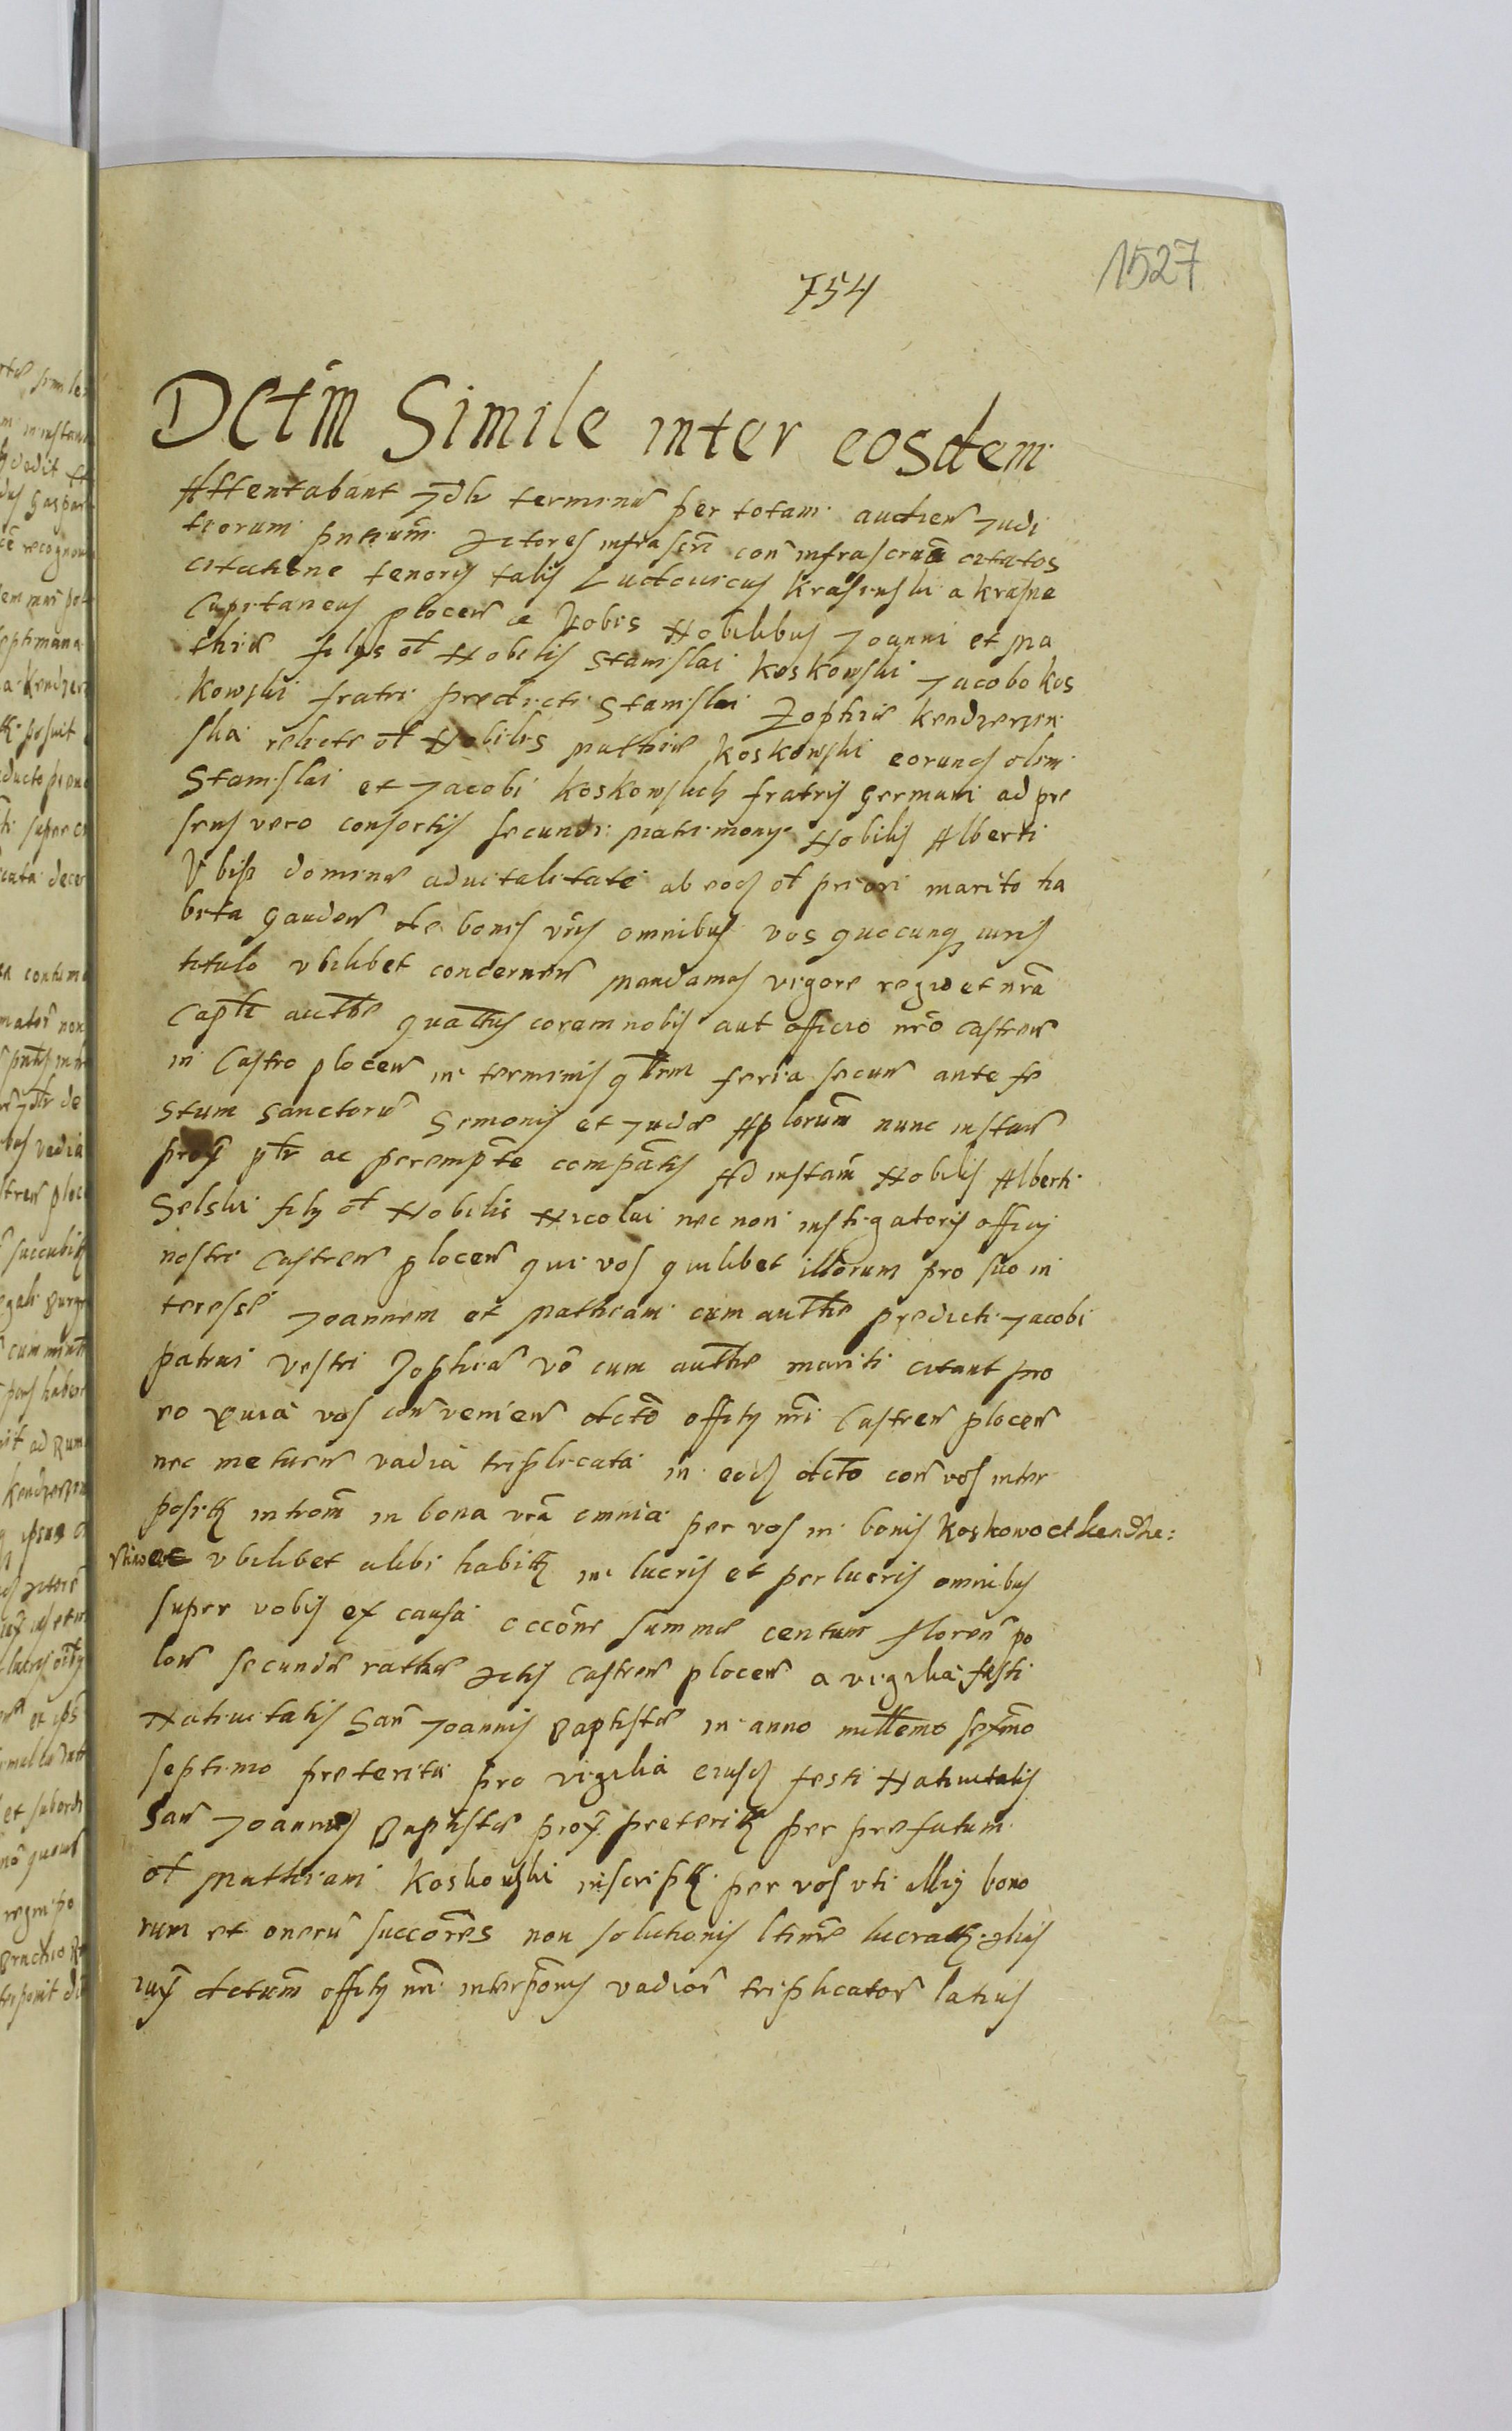 1527
754
Dctm̃ Simile inter eosdem
Attentabant Jdłr terminũ per totam audien̄ Judi
tiorum pntium̃ Actores infrascrī con̄ infrascrūm citatos
citatione tenoris talis Ludovicus Krasinski a Krasne
Capitaneus plocen̄ ē Vobis Nobilibus Joanni et Ma
thiæ filys ol̄ Nobilis Stanislai Koskowski Jacobo Kos
kowski fratri predicti Stanislai Zophiæ Kendzerzen
ska relicte ol̄ Nobilis Mathiæ Koskowski eorunđ olim
Stanislai et Jacobi Koskowskich fratris germani ad pre
sens vero consortis secundi matrimonÿ Nobilis Alberti
domine aduitalitate ab eođ ol̄ priori marito ha
bita gauden̄ de bonis vr̄is omnibus vos quocunq iuris
titulo vbilibet concernen̄ mandamus vigore regia et nr̄a
Capłi autħe quatħs coram nobis aut officio nr̄o castren̄
in Castro plocen̄ in terminis qłrm feria secun̄ ante fe
stum sanctorũ Simonis et Judæ Aplorum̃ nunc instan̄
prox̄ płr ac perempt̄e compātis Ad instam̄ Nobilis Alberti
Selski fily ol̄ Nobilis Nicolai nec non instigatoris officij
nostri Castren̄ plocen̄ qui vos quilibet illorum pro suo in
teresse Joannem et Mathiam cum autħe predicti Jacobi
patrui vestri Zophiam vō cum autħe mariti citant pro
eo Quia vos con̄ venien̄ dctō offity nr̄i Castren̄ plocen̄
nec metuen̄ vadia triplicata in eođ dcto con̄ vos inter
posiŧ introm̄ in bona vr̄a omnia per vos in bonis Koskowo et kendze:
vbilibet alibi habiŧ in lucris et perlucris omnibus
super vobis ex causa occōne summæ centum floren̄ po
lon̄ secundæ rathæ Actis castren̄ plocen̄ a vigilia festi
Natiuitatis San̄ Joannis Baptistæ in anno millemo sexm̄o
septimo preterita pro vigilia eiusđ festi Natiuitatis
San̄ Joannis Baptistæ prox̄ preteriŧ per prefatum
ol̄ Mathiam Koskowski inscripŧ per vos vti illius bono
rum et onerũ succōres non solutionis ltime lucraŧ
iux̄ dctum̃ offity nr̄i interpōnis vadior̄ triplicator̄ latius